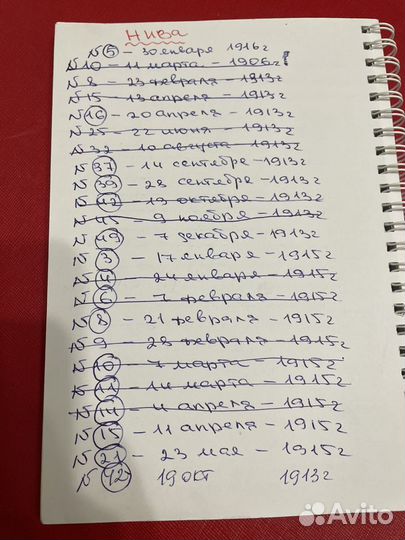 Нива
№5 - 30 января 1916г
№10 - 11 марта - 1906г!
№8 - 23 февраля - 1913г
№15 - 13 апреля - 1913г
№16 - 20 апреля - 1913г
№25 - 22 июня - 1913г
№32 - 10 августа - 1913г
№37 - 14 сентебре - 1913г
№39 - 28 сентебре - 1913г
№42 - 19 октобря - 1913г
№45 - 9 ноября - 1913г
№49 - 7 декабря - 1913г
№3 - 17 января - 1915г
№4 - 24 января - 1915г
№6 - 7 февраля - 1915г
№8 - 21 февраля - 1915г
№9 - 28 февраля - 1915г
№10 - 7 марта - 1915г
№11 - 14 марта - 1915г
№ - 4 апреля - 1915г
№15 - 11 апреля - 1915г
№21 - 23 мае - 1915г
№42 19 окт 1913г
Avito